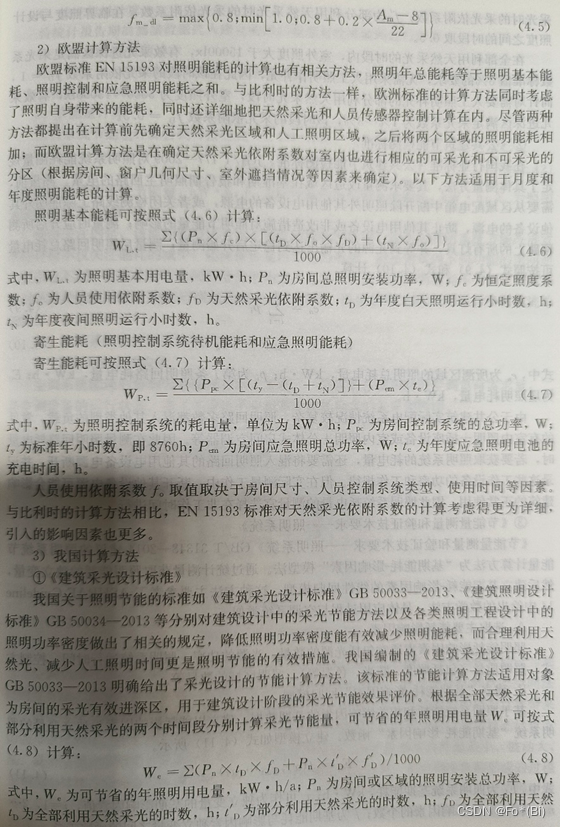 f_{m_di} = max{0.8;min[1.0;0.8+0.2×\frac{A_m-8}{22}]} (4.5)
2) 欧盟计算方法
欧盟标准 EN 15193 对照明能耗的计算也有相关方法，照明年总能耗等于照明基本能
耗、照明控制和应急照明能耗之和。与比利时的方法一样，欧洲标准的计算方法同时考虑
了照明自身带来的能耗，同时还详细地把天然采光和人员传感器控制计算在内。尽管两种
方法都提出在计算前先确定天然采光区域和人工照明区域，之后将两个区域的照明能耗相
加；而欧盟计算方法是在确定天然采光依附系数时对室内也进行相应的可采光和不可采光的
分区（根据房间、窗户几何尺寸、室外遮挡情况等因素来确定）。以下方法适用于月度和
年度照明能耗的计算。
照明基本能耗可按照式 (4.6) 计算：
W_{L,t} = \frac{Σ{(P_n×f_c)×[(t_D×f_o×f_D)+(t_N×f_o)]}}{1000} (4.6)
式中，W_{L,t} 为照明基本用电量，kW·h；P_n 为房间总照明安装功率，W；f_c 为恒定照度系
数；f_o 为人员使用依附系数；f_D 为天然采光依附系数；t_D 为年度白天照明运行小时数，h；
t_N 为年度夜间照明运行小时数，h。
寄生能耗（照明控制系统待机能耗和应急照明能耗）
寄生能耗可按照式 (4.7) 计算：
W_{P,t} = \frac{Σ{{P_{pc}×[(t_y-(t_D+t_N)]}+(P_{em}×t_e)}}{1000} (4.7)
式中，W_{P,t} 为照明控制系统的耗电量，单位为 kW·h；P_{pc} 为房间控制系统的总功率，W；
t_y 为标准年小时数，即 8760h；P_{em} 为房间应急照明总功率，W；t_e 为年度应急照明电池的
充电时间，h。
人员使用依附系数 f_o 取值取决于房间尺寸、人员控制系统类型、使用时间等因素。
与比利时的计算方法相比，EN 15193 标准对天然采光依附系数的计算考虑得更为详细，
引入的影响因素也更多。
3) 我国计算方法
①《建筑采光设计标准》
我国关于照明节能的标准如《建筑采光设计标准》GB 50033—2013、《建筑照明设计
标准》GB 50034—2013 等分别对建筑设计中的采光节能方法以及各类照明工程设计中的
照明功率密度做出了相关的规定，降低照明功率密度能有效减少照明能耗，而合理利用天
然光、减少人工照明时间更是照明节能的有效措施。我国编制的《建筑采光设计标准》
GB 50033—2013 明确给出了采光设计的节能计算方法。该标准的节能计算方法适用对象
为房间的采光有效进深区，用于建筑设计阶段的采光节能效果评价。根据全部天然采光和
部分利用天然采光的两个时间段分别计算采光节能量，可节省的年照明用电量 W_e 可按式
(4.8) 计算：
W_e = Σ(P_n×t_D×f_D+P_n×t'_D×f'_D)/1000 (4.8)
式中，W_e 为可节省的年照明用电量，kW·h/a；P_n 为房间或区域的照明安装总功率，W；
t_D 为全部利用天然采光的时数，h；t'_D 为部分利用天然采光的时数，h；f_D 为全部利用天然
CSDN @Fo（Bi）